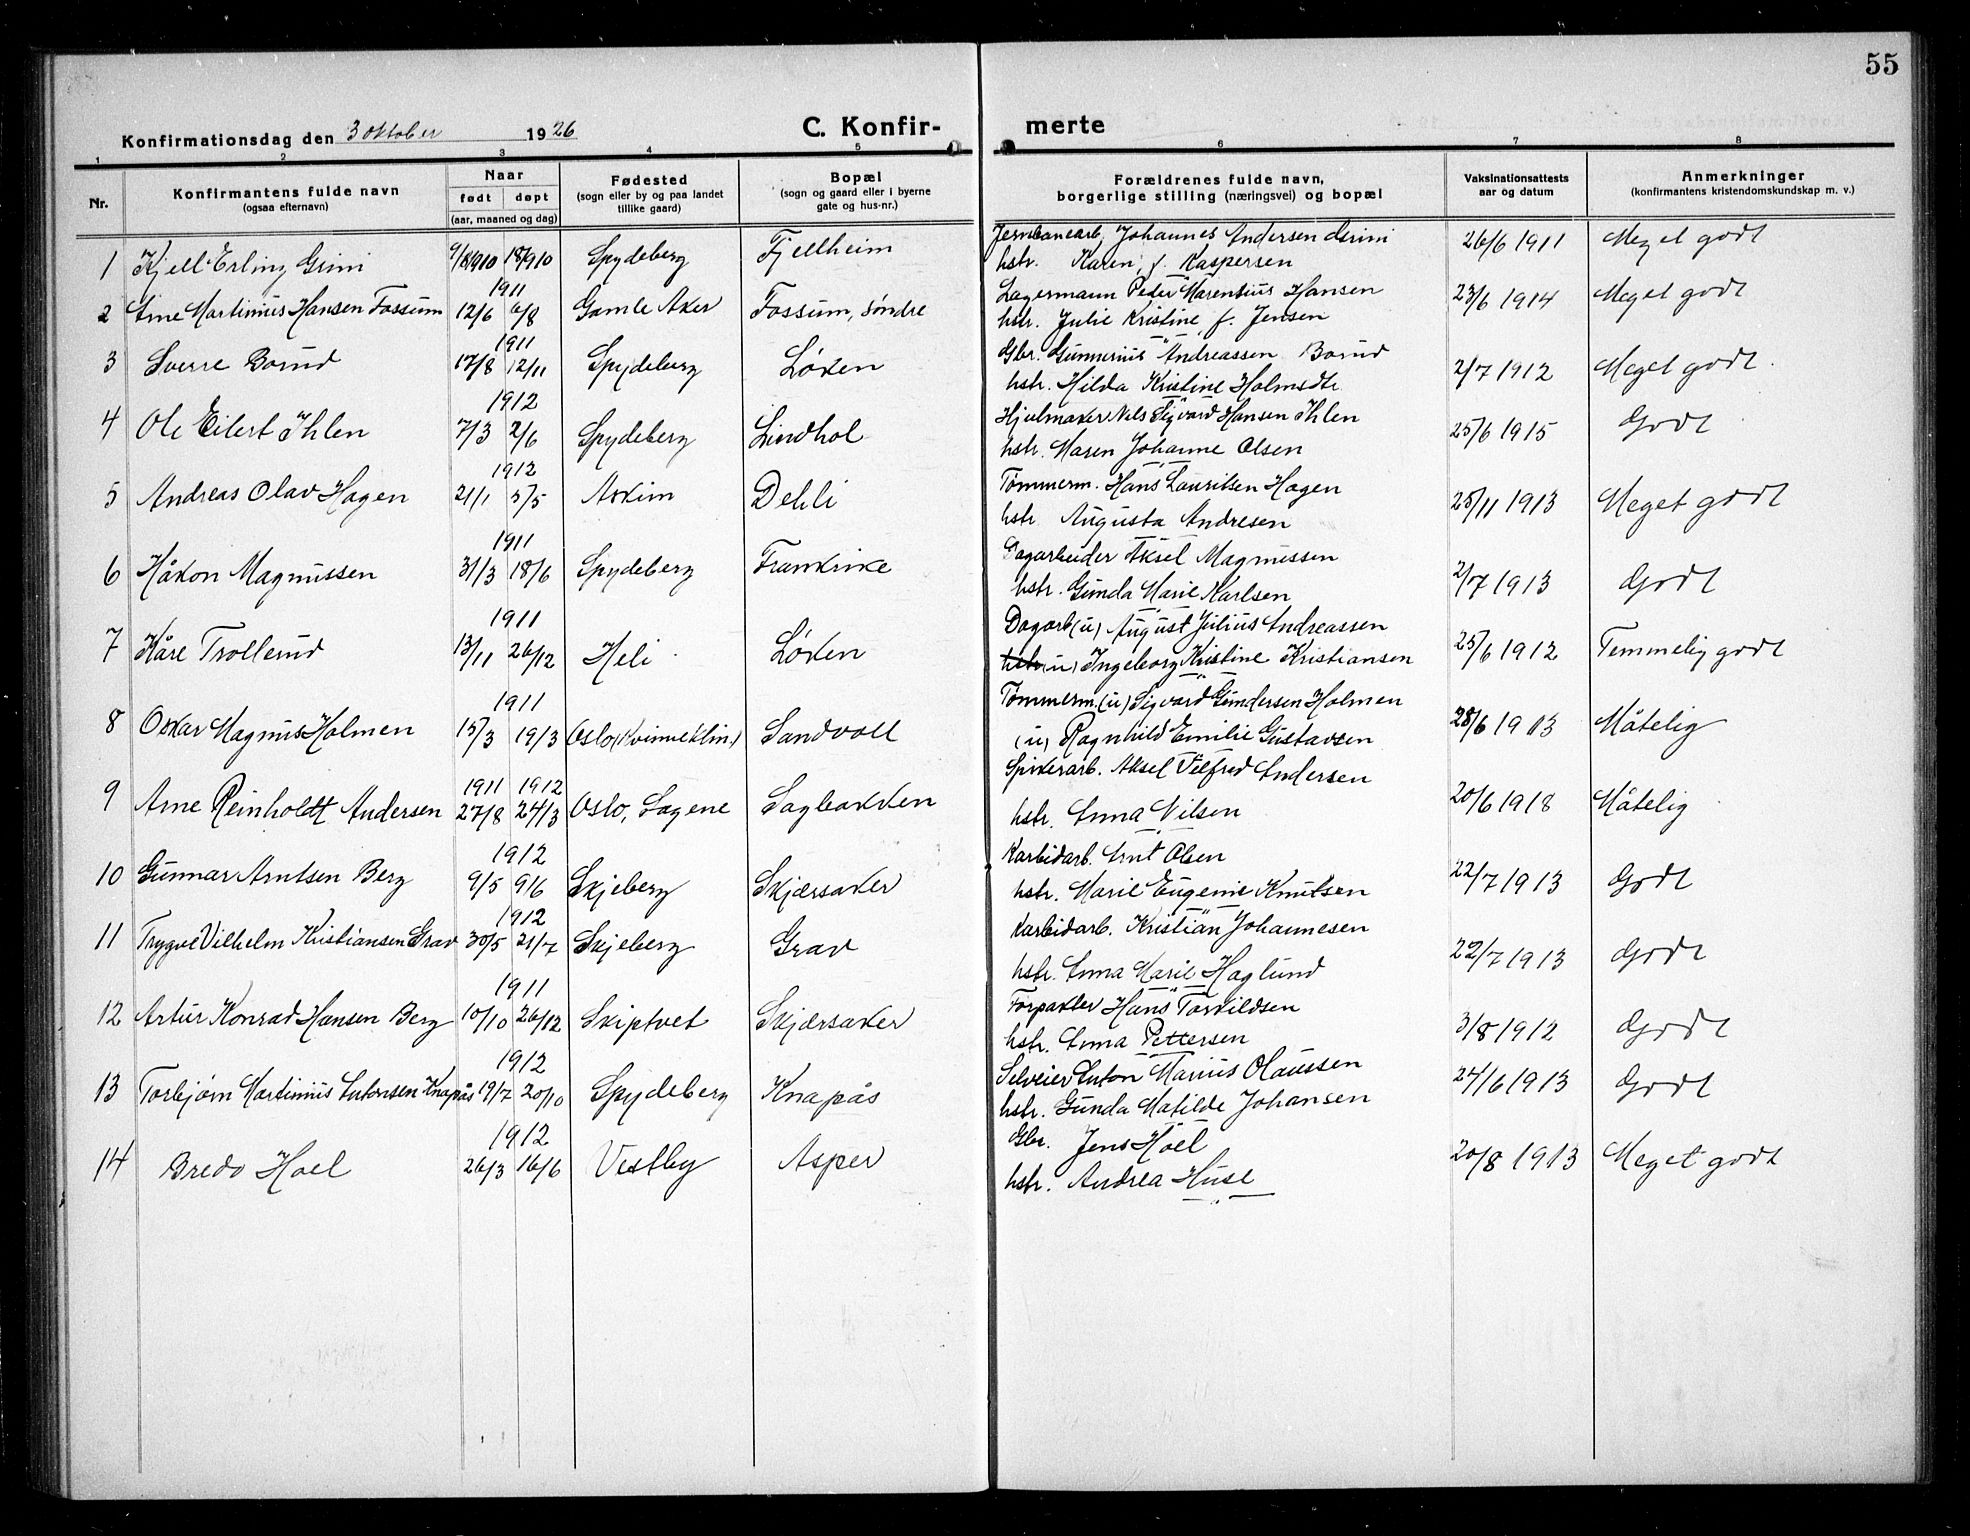 55
Konfirmationsdag den 3 oktober 1926 C. Konfir- merte
1 2 3 4 5 6 7 8
Nr. Konfirmantens fulde navn (ogsaa efternavn) Naar født døpt (aar, maaned og dag) Fødested (sogn eller by og paa landet tillike gaard) Bopæl (sogn og gaard eller i byerne gate og hus-nr.) Forældrenes fulde navn, borgerlige stilling (næringsvei) og bopæl Vaksinationsattests aar og datum Anmerkninger (konfirmantens kristendomskundskap m. v.)
1 Kjell Erling Grini 9/8 1910 18/9 10 Spydeberg Fjellheim Jernbanearb. Johannes Andersen Grini 26/6 1911 Meget godt
hstr. Karen, f. Kaspersen
1911
2 Arne Martinius Hansen Fossum 12/6 6/8 Gamle Aker Fossum, søndre Lagermann Peder Marentius Hansen 23/6 1914 Meget godt
hstr. Julie Kristine, f. Jensen
1911
3 Sverre Borud 17/8 12/11 Spydeberg Løken Gbr. Gunnerius Andreassen Borud 2/7 1912 Meget godt.
hstr. Hilda Kristine Holmsdtr.
1912
4 Ole Eilert Ihlen 7/3 2/6 Spydeberg Lindhol Hjulmaker Nils Sigvard Hansen Ihlen 25/6 1915 Godt
hstr. Maren Johanne Olsen
1912
5 Andreas Olav Hagen 21/1 5/5 Askim Dehli Tømmerm. Hans Lauritsen Hagen 25/11 1913 Meget godt
hstr. Augusta Andresen
1911
6 Håkon Magnussen 31/3 18/6 Spydeberg Frankrike Dagarbeider Aksel Magnussen 2/7 1913 Godt
hstr. Gunda Marie Karlsen
1911
7 Kåre Trollerud 13/11 26/12 Heli Løken Dagarb (u) August Julius Andreassen 25/6 1912 Temmelig godt
hstr (u) Ingeborg Kristine Kristiansen
1911
8 Oskar Magnus Holmen 15/3 19/3 Oslo (Kvinneklin.) Sandvoll Tømmerm. (u) Sigvard Gundersen Holmen 28/6 1913 Måtelig
(u) Ragnhild Emilie Gustavsen
1911 1912
9 Arne Reinholdt Andersen 27/8 24/3 Oslo, Sagene Sagbakken Spikerarb. Aksel Vilfred Andersen 20/6 1918 Måtelig
hstr. Anna Nilsen
1912
10 Gunnar Arntsen Berg 9/5 9/6 Skjeberg Skjærsaker Karbidarb. Arnt Olsen 22/7 1913 Godt
hstr. Marie Eugenie Knutsen
1912
11 Trygve Vilhelm Kristiansen Grav 30/5 21/7 Skjeberg Grav Karbidarb. Kristian Johannesen 22/7 1913 Godt
hstr. Anna Marie Haglund
1911
12 Artur Konrad Hansen Berg 10/10 26/12 Skiptvet Skjærsaker Forpakter Hans Torkildsen 3/8 1912 Godt
hstr. Anna Pettersen
1912
13 Torbjørn Martinius Antonsen Knapås 19/7 20/10 Spydeberg Knapås Selveier Anton Marius Olaussen 24/6 1913 Godt
hstr. Gunda Matilde Johansen
1912
14 Bredo Hoel 26/3 16/6 Vestby Asper Gbr. Jens Hoel 20/8 1913 Meget godt
hstr. Andrea Huse